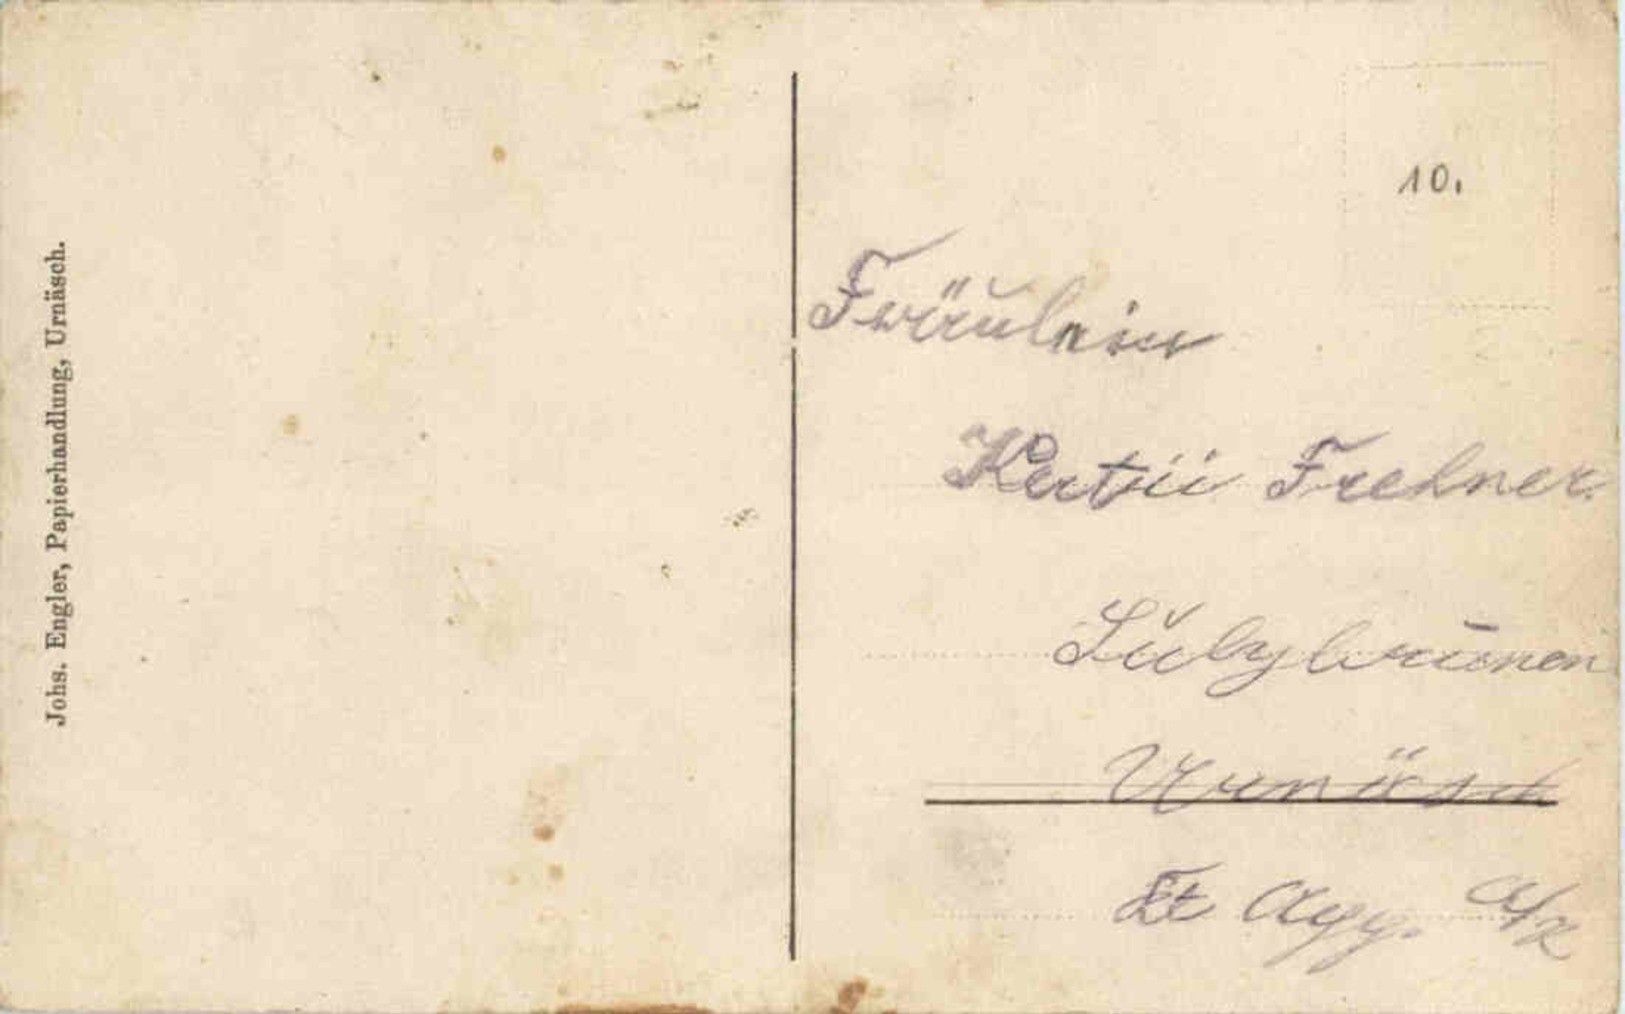 Johs. Engler, Papierhandlung, Urnäsch.
10.
Fräulein
Frehner.
Urnäsch
Kt App. A/R